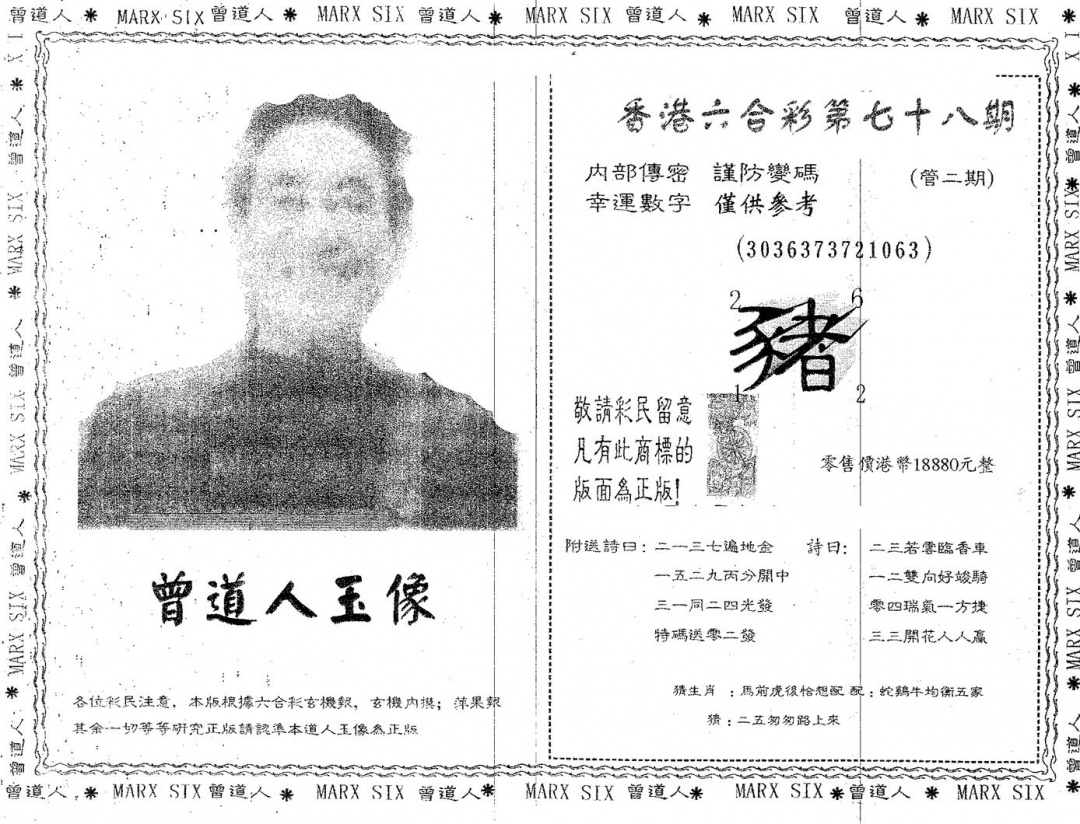 曾道人 * MARX SIX 曾道人 * MARX SIX 曾道人 * MARX SIX 曾道人 * MARX SIX 曾道人 * MARX SIX *
香港六合彩第七十八期
內部傳密 謹防變碼
(管二期)
幸運數字 僅供參考
(3036373721063)
2 6
豬
1 2
敬請彩民留意
凡有此商標的
版面為正版!
零售價港幣18880元整
附送詩曰：二一三七遍地金
一五二九丙分開中
三一同二四光發
特碼送零二發
詩曰：二三若零臨香車
一二雙向好竣騎
零四瑞氣一方捷
三三開花人人贏
猜生肖 ：馬前虎後恰想配 配：蛇鷄牛均衡五家
猜：二五匆匆路上來
曾道人玉像
各位彩民注意，本版根據六合彩玄機報，玄機內摸；萍果報
其余一切等等研究正版請認準本道人玉像為正版
曾道人 * MARX SIX 曾道人 * MARX SIX 曾道人 * MARX SIX 曾道人 * MARX SIX * 曾道人 * MARX SIX